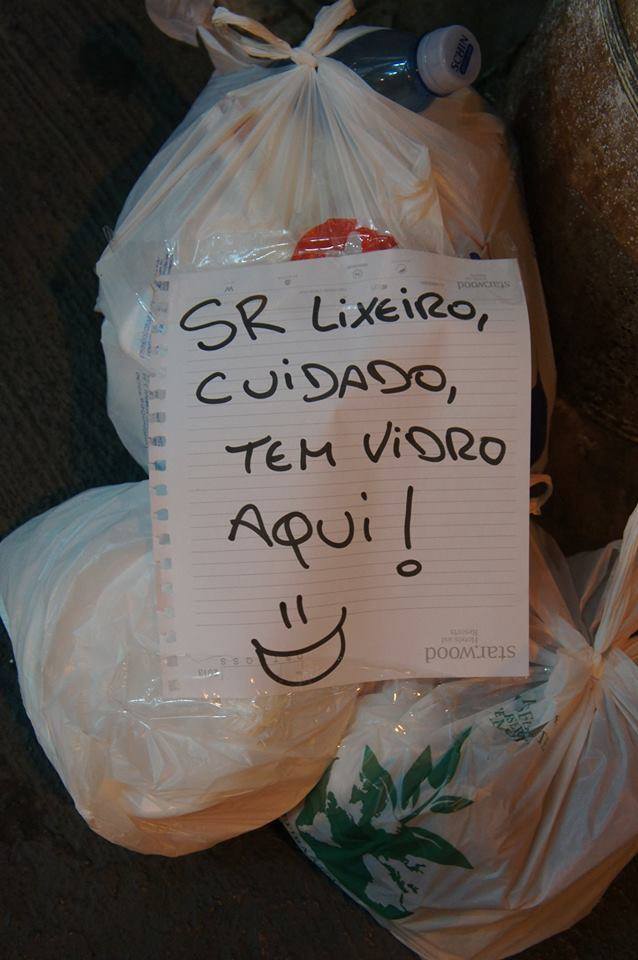 SCHIN
starwood
SR LIXEIRO,
CUIDADO,
TEM VIDRO
AQUI!
starwood
Hotels and
Resorts
2013